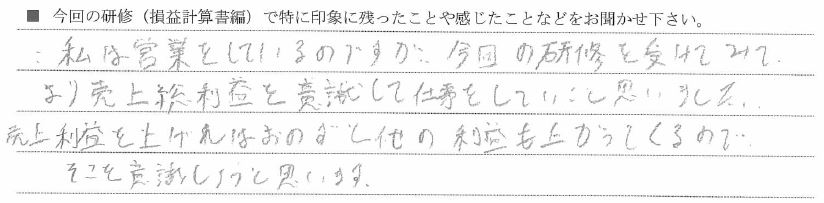 ■ 今回の研修（損益計算書編）で特に印象に残ったことや感じたことなどをお聞かせ下さい。
私は営業をしているのですが、今回の研修を受けてみて、
より売上総利益を意識して仕事をしていこと思いました。
売上利益を上げればおのずと他の利益も上がってくるので、
そこを意識しようと思います。